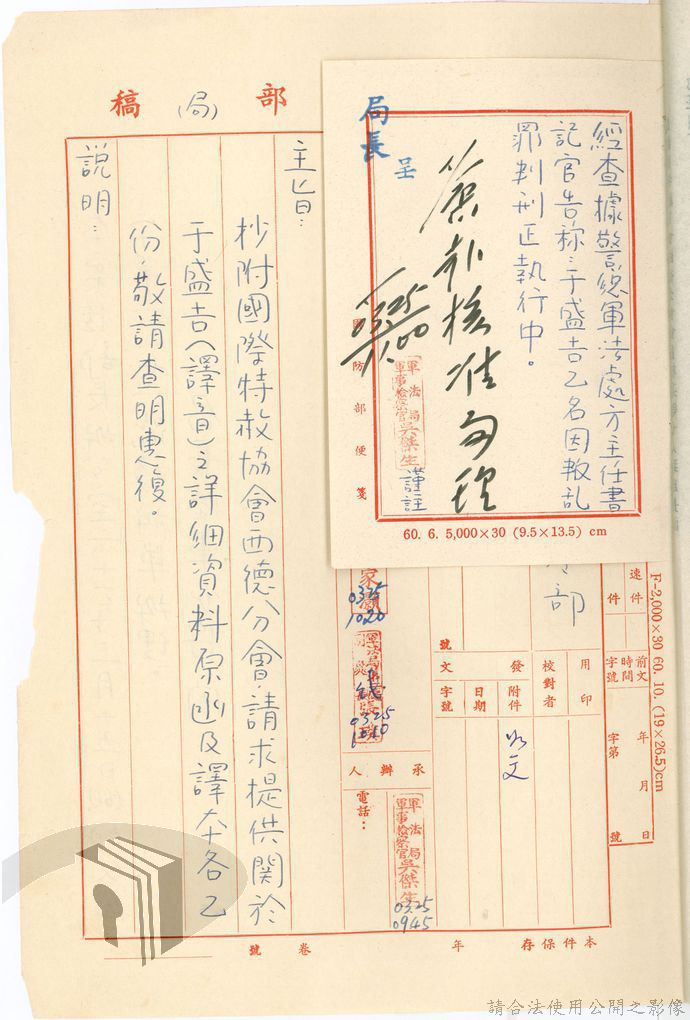 經查據警總軍法處方主任書
記官告称：于盛吉乙名因叛乱
罪判刑正執行中。
局長
呈
國防部便箋
軍法局
軍事檢察官吳傑生
謹註
60. 6. 5,000×30 (9.5×13.5) cm
部(局)稿
主旨：
抄附國際特赦協會西德分會，請求提供關於
于盛吉(譯音)之詳細資料原函及譯本各乙
份，敬請查明惠復。
說明：
部
速件
前文
時間
字號
年月日
字第號
用印
校對者
發文
附件
日期
字號
號
如文
0325
1020
軍法局
0325
承辦人
電話：
軍法局
軍事檢察官吳傑生
0325
0945
本件保存年
卷號
F-2,000×30 60. 10. (19×26.5)cm
請合法使用公開之影像